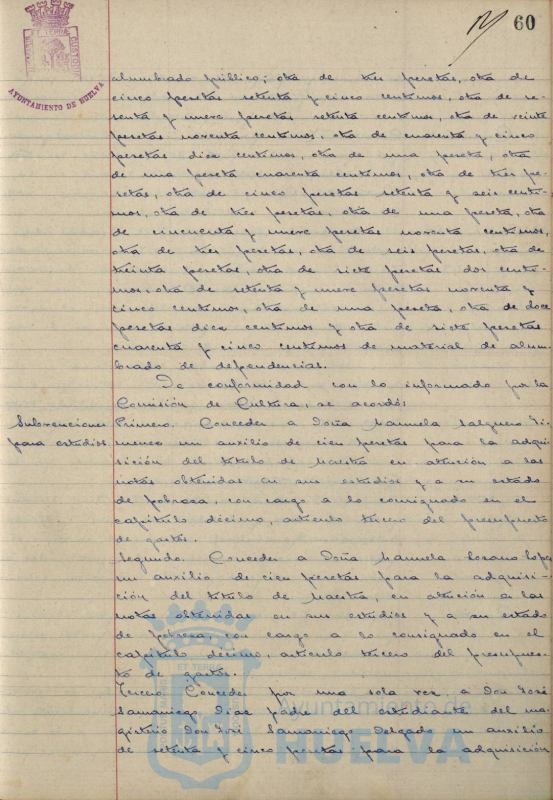 60
PORTUS MARIS ET TERRAE CUSTODIA
AYUNTAMIENTO DE HUELVA
alumbrado público; otra de tres pesetas, otra de
cinco pesetas setenta y cinco centimos, otra de se-
senta y nueve pesetas setenta centimos, otra de veinte
pesetas noventa centimos, otra de cuarenta y cinco
pesetas diez centimos, otra de una peseta, otra
de una peseta cuarenta centimos, otra de tres pe-
setas, otra de cinco pesetas setenta y seis centi-
mos, otra de tres pesetas, otra de una peseta, otra
de cincuenta y nueve pesetas noventa centimos,
otra de tres pesetas, otra de seis pesetas, otra de
treinta pesetas, otra de siete pesetas dos centi-
mos, otra de setenta y nueve pesetas noventa y
cinco centimos, otra de una peseta, otra de doce
pesetas diez centimos y otra de siete pesetas
cuarenta y cinco centimos de material de alum-
brado de dependencias.
De conformidad con lo informado por la
Comisión de Cultura, se acordó:
Subvenciones
para estudios
Primero. Conceder a Doña Manuela Salguero Ji-
menez un auxilio de cien pesetas para la adqui-
sición del titulo de Maestra en atención a las
notas obtenidas en sus estudios y a su estado
de pobreza, con cargo a lo consignado en el
capitulo décimo, articulo tercero del presupuesto
de gastos.
Segundo. Conceder a Doña Manuela Lozano Lopez
un auxilio de cien pesetas para la adquisi-
ción del titulo de Maestra, en atención a las
notas obtenidas en sus estudios y a su estado
de pobreza, con cargo a lo consignado en el
capitulo décimo, articulo tercero del presupues-
to de gastos.
Tercero. Conceder por una sola vez a Don José
Samaniego Diaz padre del estudiante del ma-
gisterio Don José Samaniego Delgado un auxilio
de setenta y cinco pesetas para la adquisición
Ayuntamiento de
HUELVA